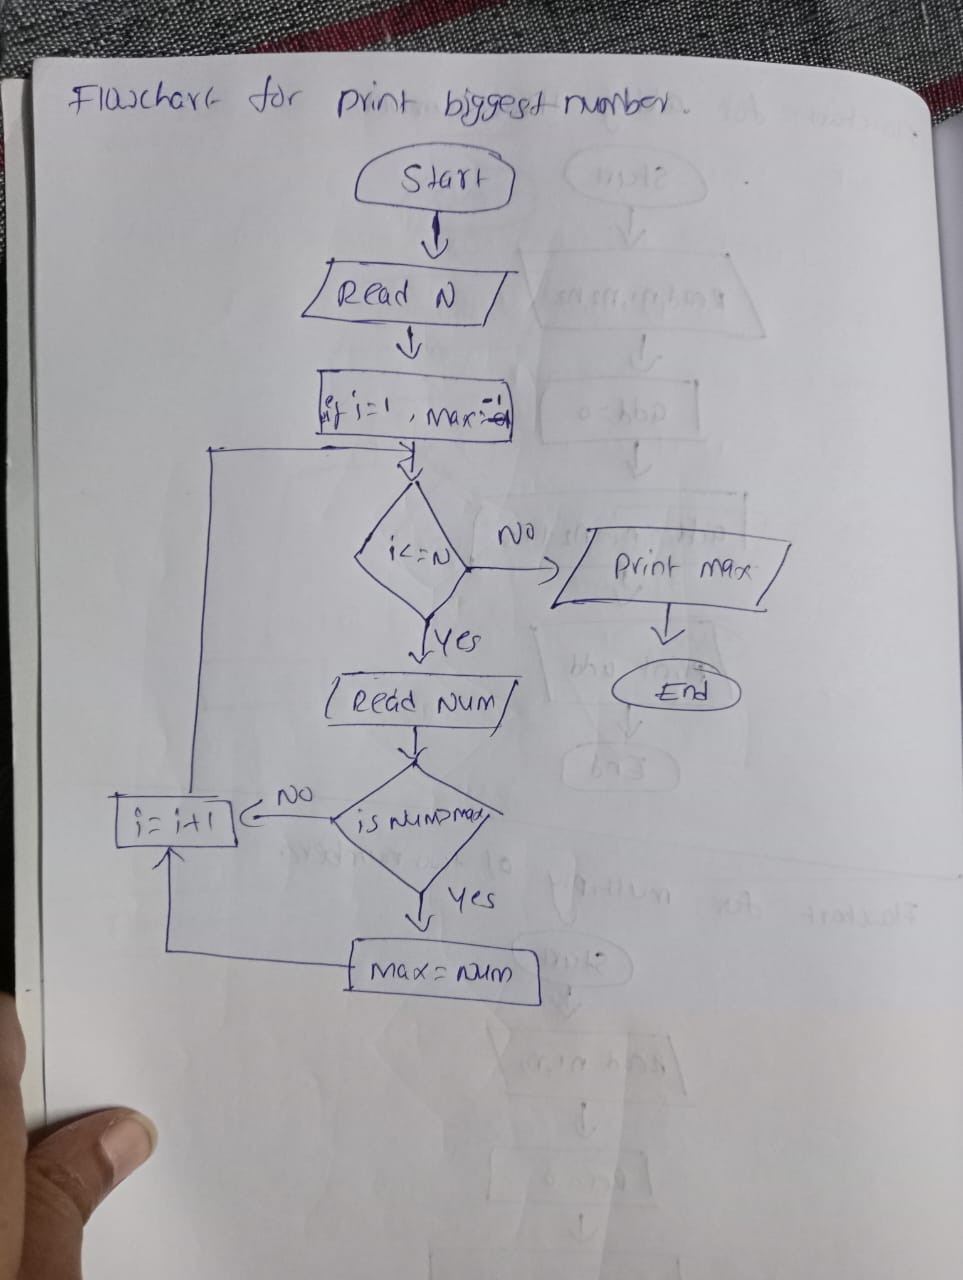 Flowchart for print biggest number.
Start
Read N
if i=1, Max=-1
i<=N
No
print max
Yes
End
Read Num
is Num>max
No
i=i+1
Yes
Max=Num